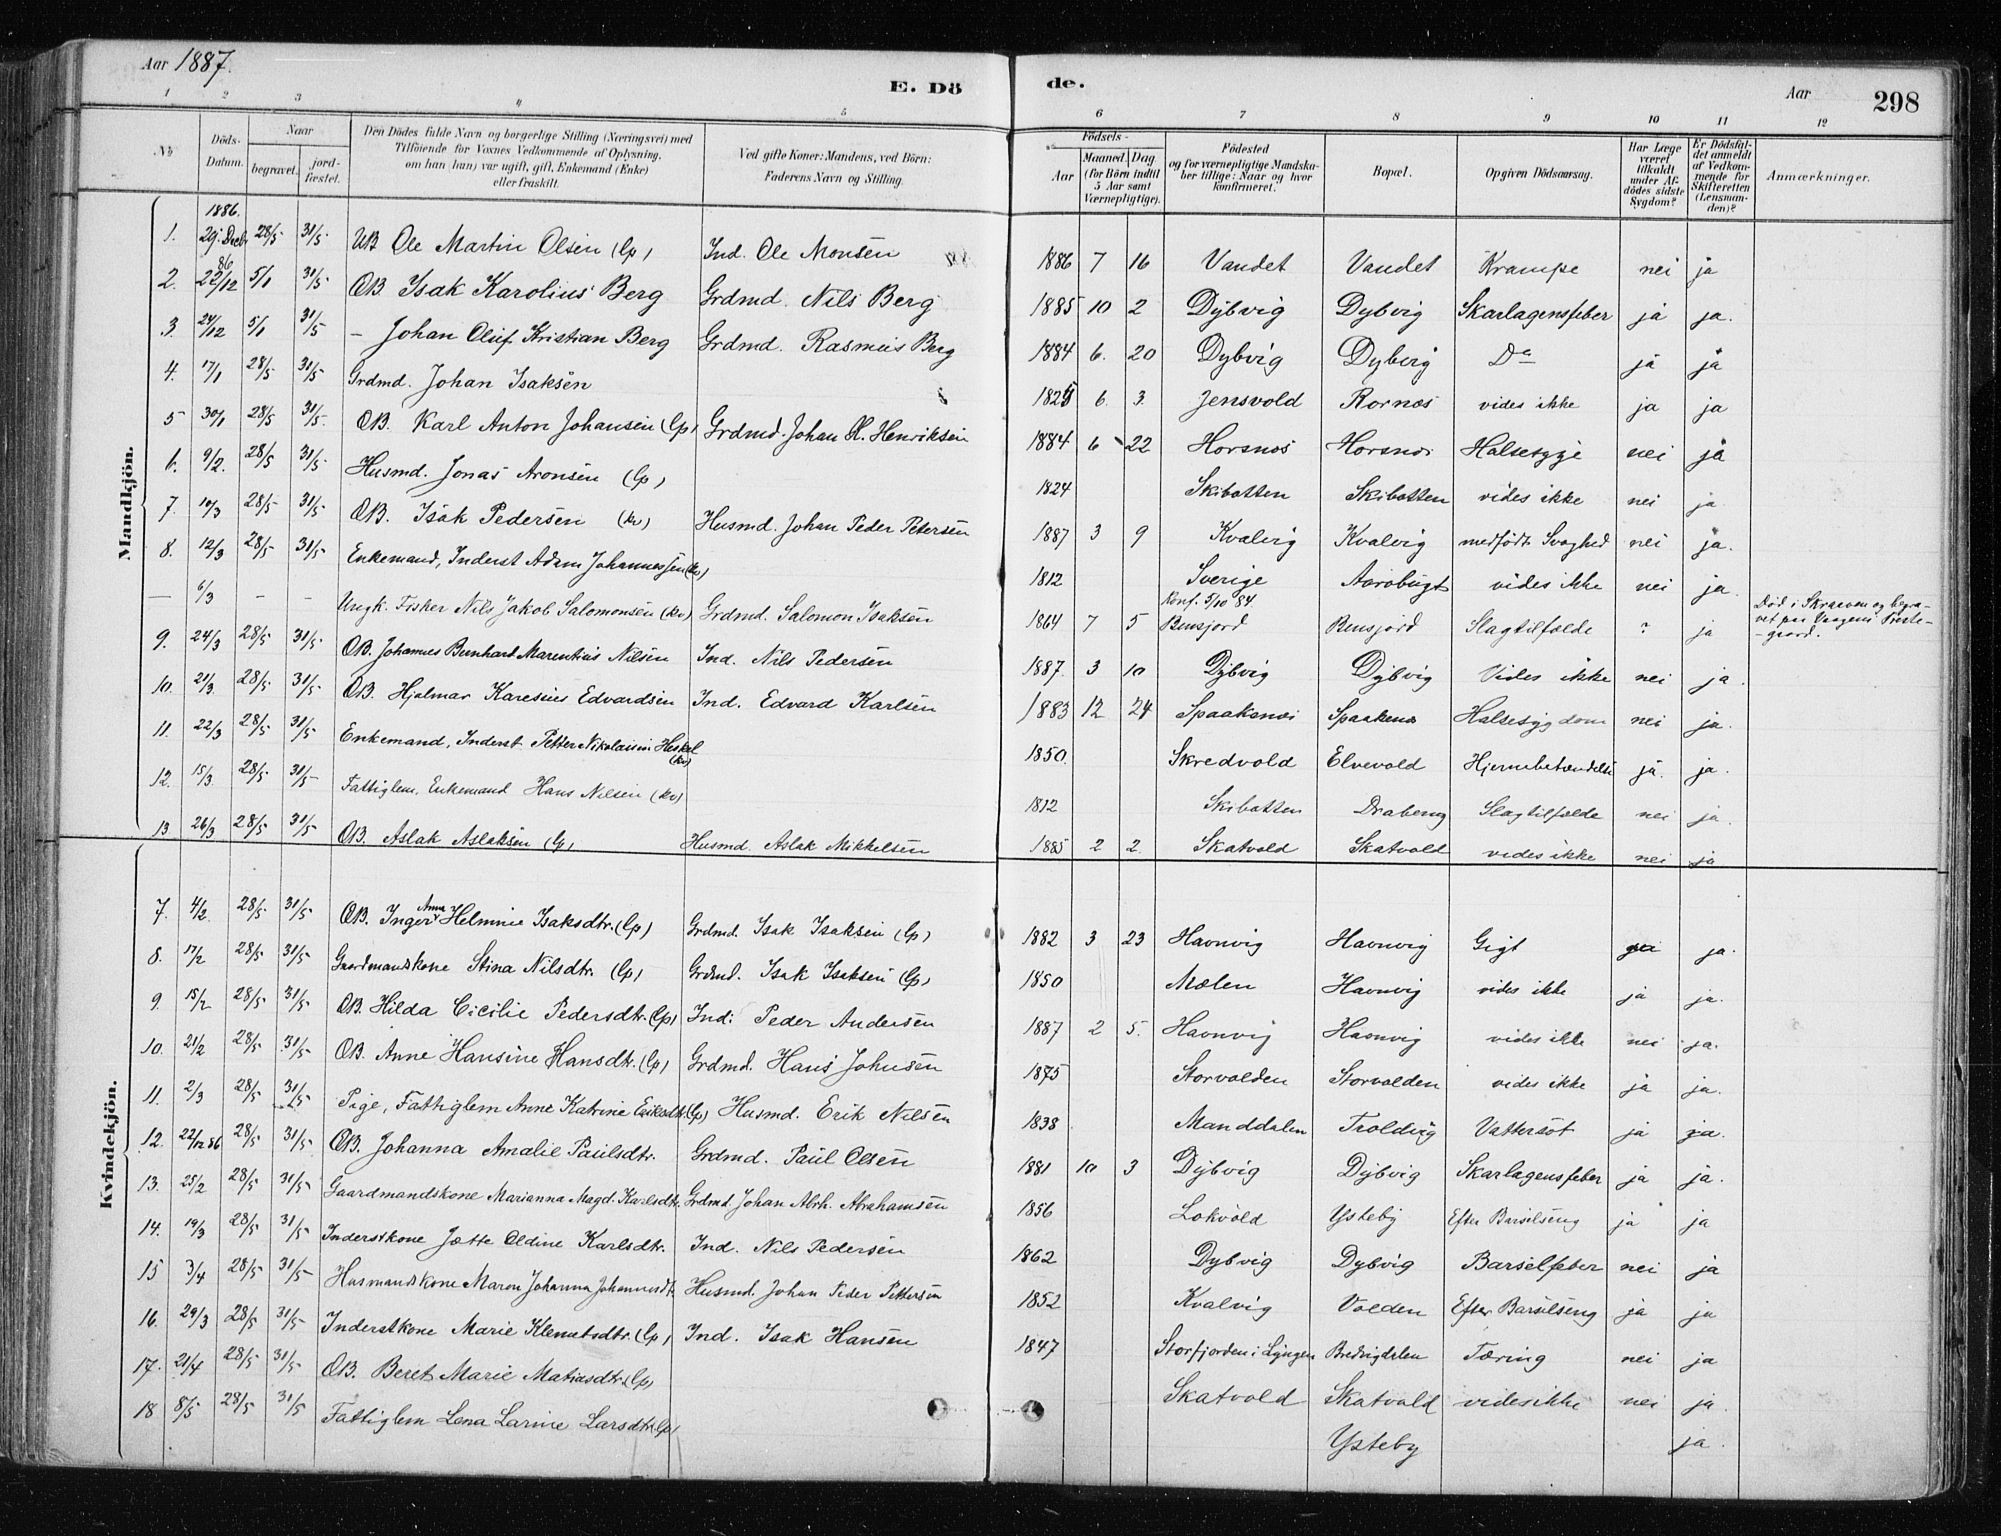 Aar 1887.
E. Dö
de.
Aar
298
1 2 3 4 5 6 7 8 9 10 11 12
No
Döds-Datum.
Naar
begravet.
jord-fæstet.
Den Dödes fulde Navn og borgerlige Stilling (Næringsvei) med
Tilföiende for Voxnes Vedkommende af Oplysning,
om han (hun) var ugift, gift, Enkemand (Enke)
eller fraskilt.
Ved gifte Koner: Mandens, ved Börn:
Faderens Navn og Stilling.
Födsels-
Aar
Maaned. Dag
(for Börn indtil
5 Aar samt
Værnepligtige).
Födested
og for værnepligtige Mandska-
ber tillige: Naar og hvor
konfirmeret.
Bopæl.
Opgiven Dödsaarsag.
Har Læge
været
tilkaldt
under Af-
dödes sidste
Sygdom?
Er Dödsfal-
det anmeldt
af Vedkom-
mende for
Skifteretten
(Lensman-
den)?
Anmærkninger.
Mandkjön.
1886.
1. 29. Decbr 28/5 31/5 UB Ole Martin Olsen (Gp) Ind. Ole Monsen 1886 7 16 Vandet Vandet Krampe nei ja
86
2. 22/12 5/1 31/5 ÆB. Isak Karolius Berg Grdmd. Nils Berg 1885 10 2 Dybvig Dybvig Skarlagensfeber ja ja.
3. 24/12 5/1 31/5 – Johan Oluf Kristian Berg Grdmd. Rasmus Berg 1884 6. 20 Dybvig Dybvig Do ja ja
4. 17/1 28/5 31/5 Grdmd. Johan Isaksen 1825 6. 3. Jensvold Rornæs vides ikke ja ja
5 30/1 28/5 31/5. ÆB. Karl Anton Johansen (Gp) Grdmd. Johan H. Henriksen 1884 6 22 Horsnæs Horsnæs Halsesyge nei ja
6. 9/2. 28/5 31/5 Husmd. Jonas Aronsen (Gp) 1824 Skibotten Skibotten vides ikke nei ja.
7. 10/3 28/5 31/5 ÆB. Isak Pedersen (kv) Husmd. Johan Peder Petersen 1887 3 9 Kvalvig Kvalvig medfödt Svaghed nei ja.
8. 12/3 28/5 31/5 Enkemand, Inderst Adam Johannessen (kv) 1812 Sverige Aarøbugt vides ikke nei ja.
– 6/3 – – Ungk. Fisker Nils Jakob Salomonsen (kv) Grdmd. Salomon Isaksen 1864 7 5 Konf. 5/10 84. Bensjord Bensjord Slagtilfælde ? ja
Död i Skraaven og begra-
vet paa Vaagens Kirke-
-gaard.
9. 24/3 28/5 31/5 ÆB. Johannes Bernhard Marentius Nilsen Ind. Nils Pedersen 1887. 3 10 Dybvig Dybvig Vides ikke nei ja.
10. 21/3. 28/5 31/5 ÆB. Hjalmar Karesius Edvardsen Ind. Edvard Karlsen 1883 12 24 Spaaknæs Spaaknæs Halsesygdom nei ja.
11. 22/3 28/5 31/5 Enkemand, Inderst Petter Nikolaisen Heskel (kv) 1850. Skredvold Elvevold Hjernebetændelse ja. ja.
12. 15/3. 28/5 31/5 Fattiglem, Enkemand Hans Nilsen (kv) 1812 Skibotten Draberg Slagtilfælde nei ja.
13 26/3 28/5 31/5 ÆB. Aslak Aslaksen (Gp) Husmd Aslak Mikkelsen 1885 2 2. Skatvold Skatvold vides ikke nei ja
Kvindekjön.
7. 4/2. 28/5 31/5 ÆB. Inger Anna Helmine Isaksdtr. (Gp) Grdmd. Isak Isaksen (Gp) 1882 3 23 Havnvig Havnvig Gigt nei ja.
8. 17/2 28/5 31/5 Gaardmandskone Stina Nilsdtr. (Gp) Grdmd. Isak Isaksen (Gp) 1850 Mælen Havnvig vides ikke ja ja.
9. 15/2 28/5 31/5 ÆB. Hilda Cicilie Pedersdtr. (Gp) Ind: Peder Andersen 1887 2 5. Havnvig Havnvig vides ikke nei ja.
10. 21/2 28/5 31/5 ÆB. Anne Hansine Hansdtr. (Gp) Grdmd. Hans Johnsen 1875 Storvolden Storvolden vides ikke ja ja.
11. 2/3 28/5 31/5 Pige, Fattiglem Anne Katrine Eriksdtr. (Gp) Husmd. Erik Nilsen 1838 Manddalen Troldvig Vattersot ja ja.
12. 22/12 86 28/5 31/5 ÆB. Johanna Amalie Paulsdtr. Grdmd. Paul Olsen 1881 10 3 Dybvig Dybvig Skarlagensfeber ja ja.
13. 25/2 28/5 31/5 Gaardmandskone Marianna Magd. Karlsdtr. Grdmd. Johan Abrh. Abrahamsen 1856 Lokvold Ysteby Efter Barselseng ja ja
14. 19/3 28/5 31/5 Inderstkone Jætte Oldine Karlsdtr. Ind. Nils Pedersen 1862 Dybvig Dybvig Barselfeber nei ja
15 3/4 28/5 31/5 Husmandskone Maren Johanna Johannesdt. Husmd. Johan Peder Pettersen 1852 Kvalvig Volden Efter Barselseng ja ja
16. 29/3 28/5 31/5 Inderstkone Marie Klemetsdtr. (Gp) Ind. Isak Hansen 1847 Storfjorden i Lyngen Bredvigdalen Tæring nei ja
17. 21/4 28/5 31/5 ÆB. Beret Marie Matiasdtr. (Gp) Skatvold Skatvold vides ikke nei ja.
18 8/5 28/5 31/5 Fattiglem Lena Larine Larsdtr. (Gp) Ysteby ja.